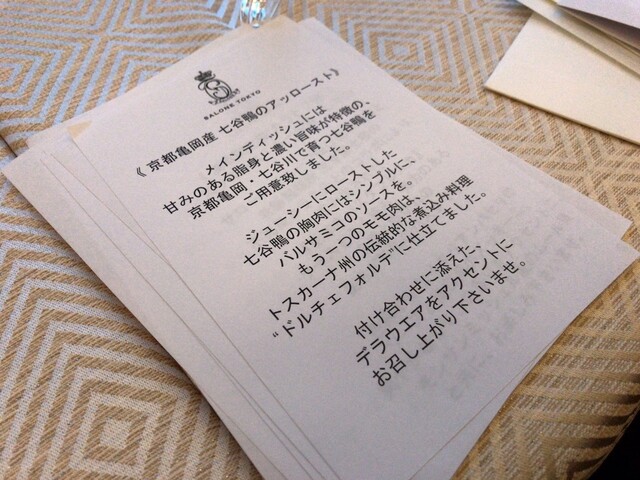 SALONE TOKYO
《 京都亀岡産 七谷鴨のアッロースト》
メインディッシュには
甘みのある脂身と濃い旨味が特徴の、
京都亀岡・七谷川で育つ七谷鴨を
ご用意致しました。
ジューシーにローストした
七谷鴨の胸肉にはシンプルに、
バルサミコのソースを。
もう一つのモモ肉は、
トスカーナ州の伝統的な煮込み料理
“ドルチェフォルテ”に仕立てました。
付け合わせに添えた、
デラウエアをアクセントに
お召し上がり下さいませ。